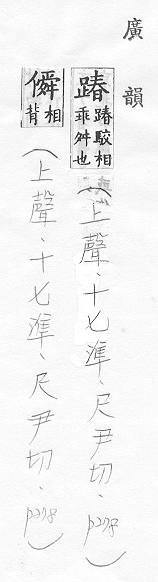 廣韻
蹖蹖駮相乖舛也(上聲、十七準、尺尹切、P278)
僢相背(上聲、十七準、尺尹切、P278)